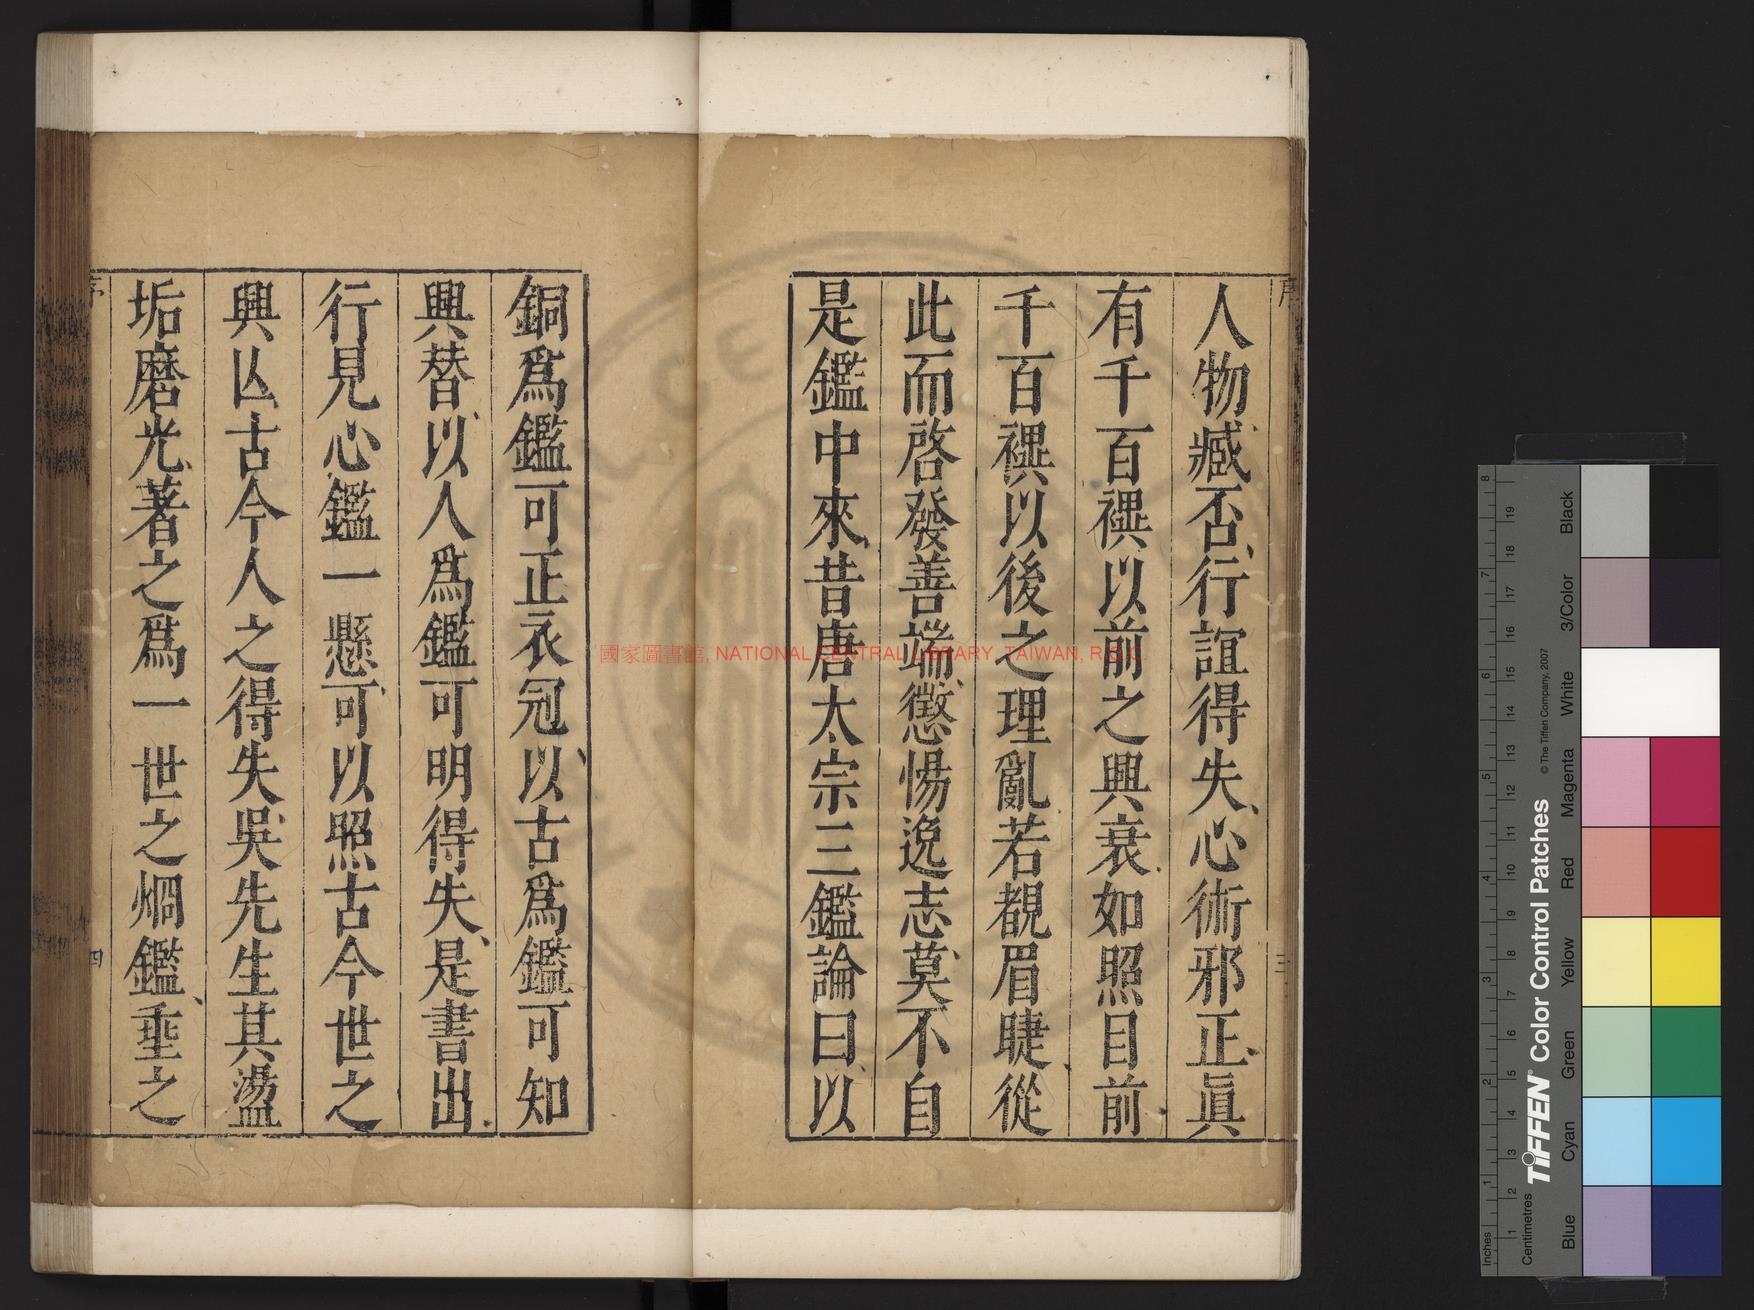 人物、臧否、行誼得失、心術邪正、眞
有千百禩以前之興衰、如照目前
千百禩以後之理亂若覩眉睫、從
此而啓發善端、懲惕逸志、莫不自
是鑑中來、昔唐太宗三鑑論曰、以
銅爲鑑可正衣冠、以古爲鑑可知
興替、以人爲鑑可明得失、是書出、
行見心鑑一懸、可以照古今世之
興亾、古今人之得失、吳先生其盪
垢磨光、著之爲一世之烱鑑、埀之
序
三
四
國家圖書館, NATIONAL CENTRAL LIBRARY, TAIWAN, R.O.C.
Inches
Centimetres
TIFFEN® Color Control Patches
© The Tiffen Company, 2007
Blue
Cyan
Green
Yellow
Red
Magenta
White
3/Color
Black